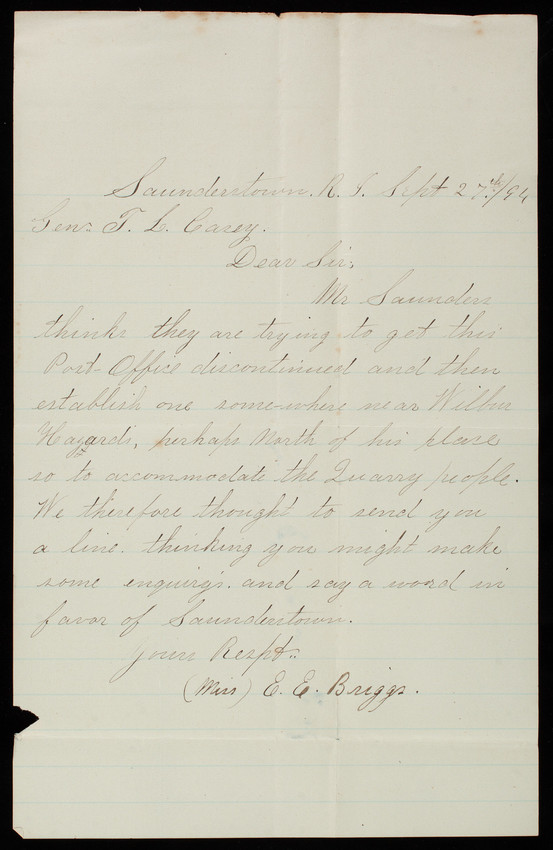 Saunderstown. R. I. Sept 27th/94
Genl T. L. Casey.
Dear Sir;
Mr Saunders
thinks they are trying to get this
Post-Office discontinued and then
establish one some-where near Wilbur
Hazards, perhaps North of his place
so to accommodate the Quarry people.
We therefore thought to send you
a line. thinking you might make
some enquirys. and say a word in
favor of Saunderstown.
Yours Respt.
(Miss) E. E. Briggs.